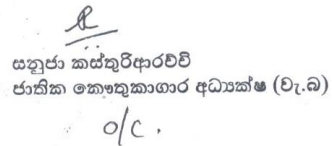 සනුජා කස්තුරිආරච්චි
ජාතික කෞතුකාගාර අධ්‍යක්ෂ (වැ.බ)
o/c.